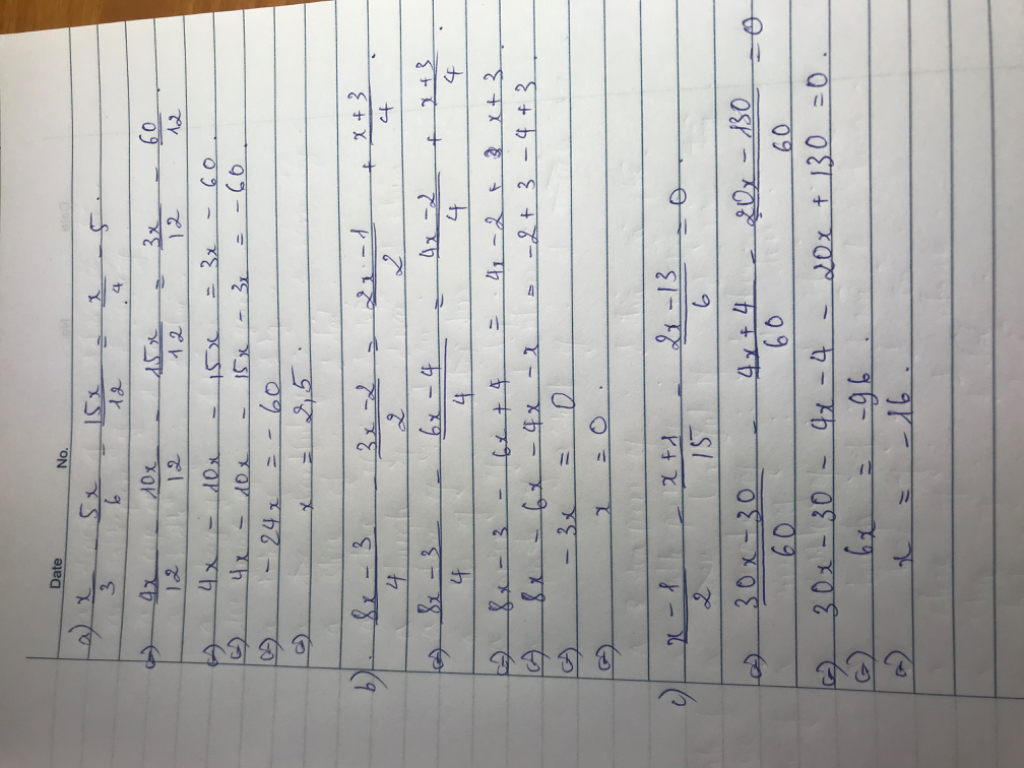 Date No.
a) x/3 - 5x/6 - 15x/12 = x/4 - 5.
⇔ 4x/12 - 10x/12 - 15x/12 = 3x/12 - 60/12.
⇔ 4x - 10x - 15x = 3x - 60.
⇔ 4x - 10x - 15x - 3x = -60
⇔ -24x = -60
⇔ x = 2,5
b) (8x-3)/4 - (3x-2)/2 = (2x-1)/2 + (x+3)/4.
⇔ (8x-3)/4 - (6x-4)/4 = (4x-2)/4 + (x+3)/4
⇔ 8x-3 - 6x+4 = 4x-2 + x+3.
⇔ 8x - 6x - 4x - x = -2+3-4+3.
⇔ -3x = 0
⇔ x = 0.
c) (x-1)/2 - (x+1)/15 - (2x-13)/6 = 0
⇔ (30x-30)/60 - (4x+4)/60 - (20x-130)/60 = 0
⇔ 30x-30 - 4x-4 - 20x+130 = 0.
⇔ 6x = -96.
⇔ x = -16.